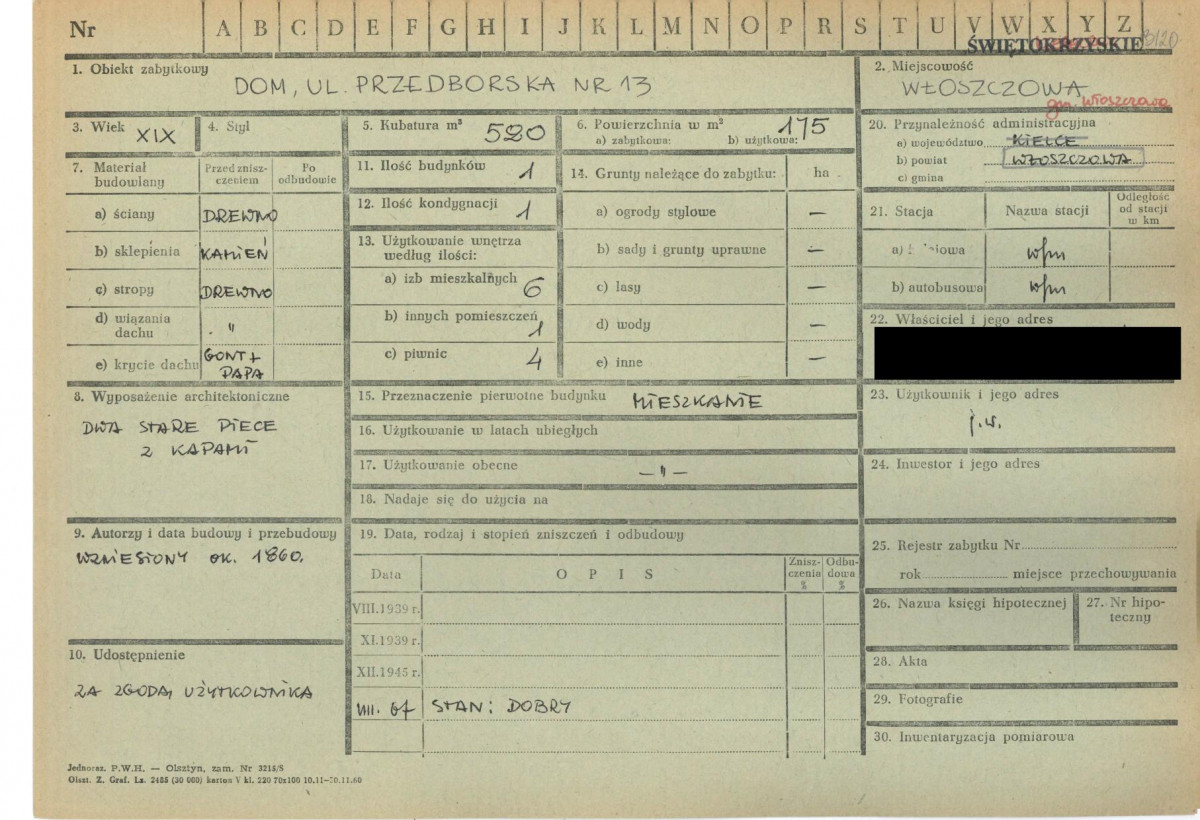 Nr A B C D E F G H I J K L M N O P R S T U V W X Y Z
ŚWIĘTOKRZYSKIE
1. Obiekt zabytkowy
DOM, UL. PRZEDBORSKA NR 13
2. Miejscowość
WŁOSZCZOWA
gm. Włoszczowa
3. Wiek XIX
4. Styl
5. Kubatura m³ 520
6. Powierzchnia w m² 175
a) zabytkowa: b) użytkowa:
20. Przynależność administracyjna
a) województwo KIELCE
b) powiat WŁOSZCZOWA
c) gmina
7. Materiał budowlany
Przed zniszczeniem
Po odbudowie
a) ściany DREWNO
b) sklepienia KAMIEŃ
c) stropy DREWNO
d) wiązania dachu "
e) krycie dachu GONT + PAPA
11. Ilość budynków 1
12. Ilość kondygnacji 1
13. Użytkowanie wnętrza
według ilości:
a) izb mieszkalnych 6
b) innych pomieszczeń 1
c) piwnic 4
14. Grunty należące do zabytku: ha
a) ogrody stylowe —
b) sady i grunty uprawne —
c) lasy —
d) wody —
e) inne —
21. Stacja
Nazwa stacji
Odległość od stacji w km
a)
b) autobusowa
22. Właściciel i jego adres
8. Wyposażenie architektoniczne
DWA STARE PIECE
Z KAPAMI
15. Przeznaczenie pierwotne budynku MIESZKANIE
16. Użytkowanie w latach ubiegłych
17. Użytkowanie obecne — " —
18. Nadaje się do użycia na
23. Użytkownik i jego adres
j.w.
24. Inwestor i jego adres
9. Autorzy i data budowy i przebudowy
WZNIESIONY OK. 1860.
19. Data, rodzaj i stopień zniszczeń i odbudowy
Data
OPIS
Zniszczenia %
Odbudowa %
VIII.1939 r.
XI.1939 r.
XII.1945 r.
STAN: DOBRY
25. Rejestr zabytku Nr
rok miejsce przechowywania
26. Nazwa księgi hipotecznej
27. Nr hipoteczny
10. Udostępnienie
ZA ZGODĄ UŻYTKOWNIKA
28. Akta
29. Fotografie
30. Inwentaryzacja pomiarowa
Jednoraz. P.W.H. — Olsztyn, zam. Nr 3215/S
Olszt. Z. Graf. Lz. 2485 (30 000) karton V kl. 220 70x100 10.11—30.11.60